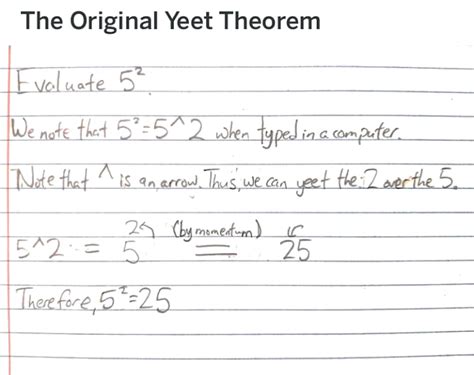 The Original Yeet Theorem
Evaluate 5².
We note that 5²=5^2 when typed in a computer.
Note that ^ is an arrow. Thus, we can yeet the 2 over the 5.
5^2 = 2↰ (by momentum) ↙
5 = 25
Therefore, 5²=25